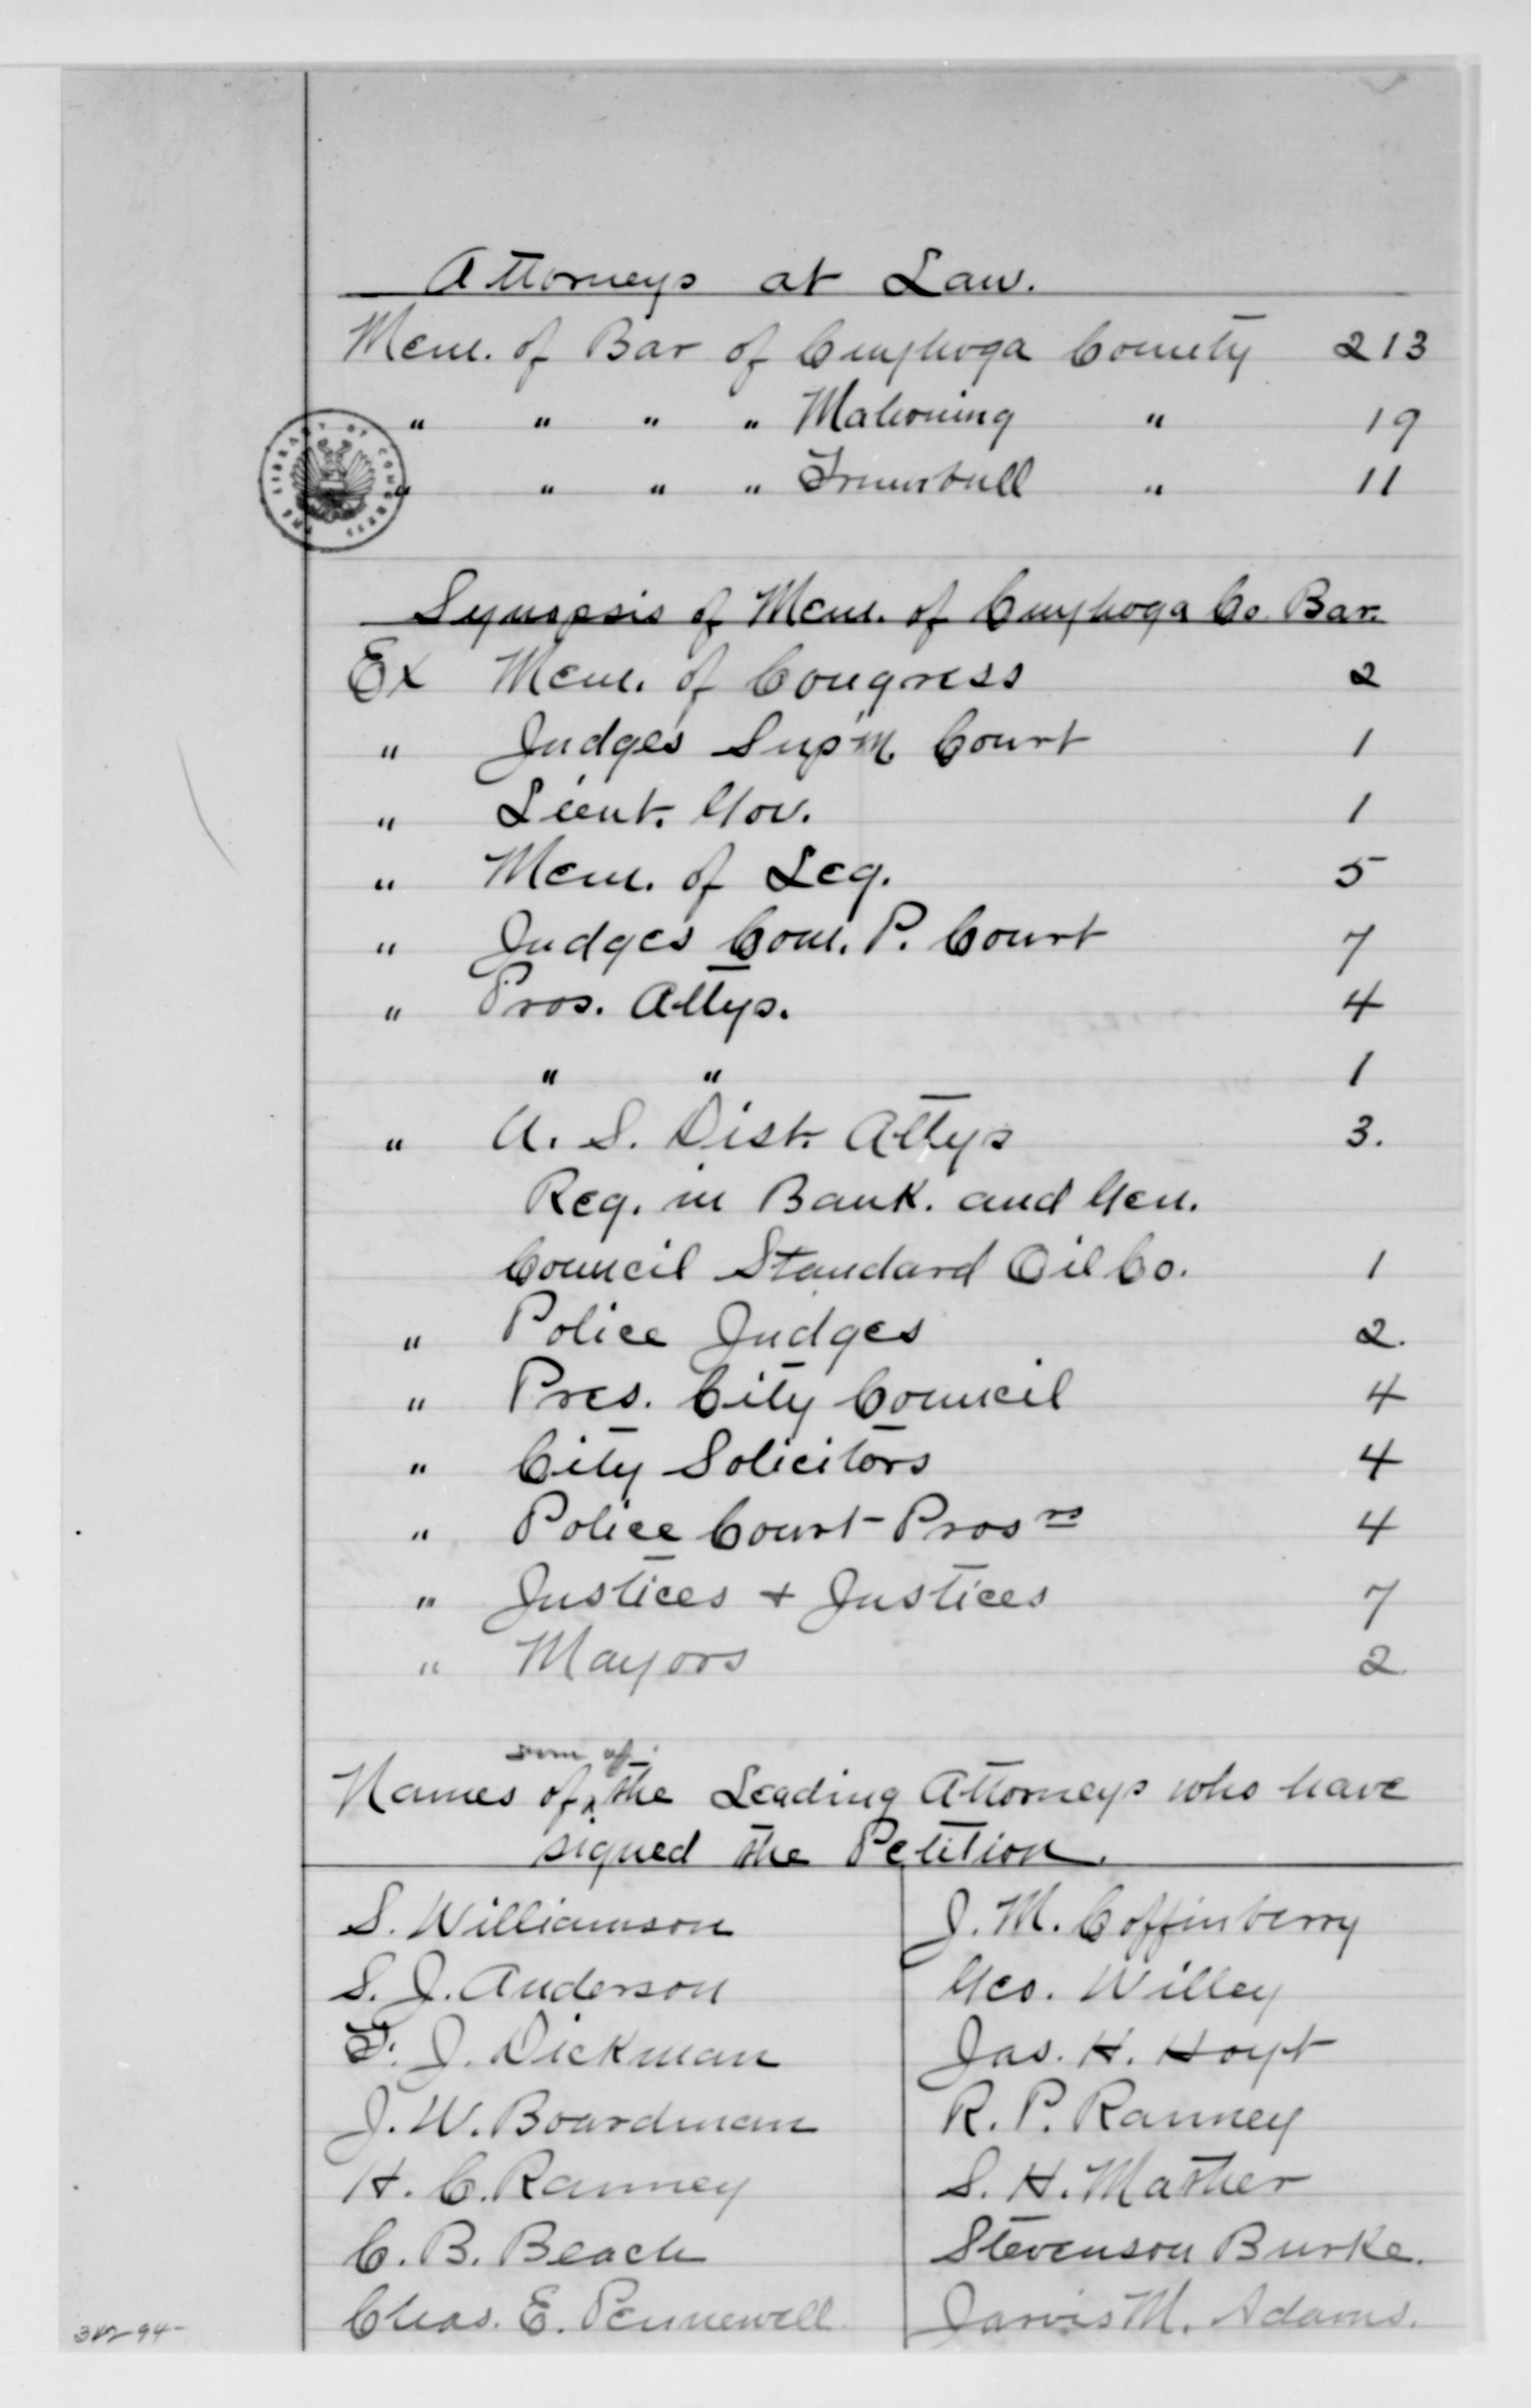 Attorneys at Law.
Mem. of Bar of Cuyhoga County 213
" " " " Mahoning " 19
" " " " Trumbull " 11
THE LIBRARY OF CONGRESS
Synopsis of Mem. of Cuyhoga Co. Bar.
Ex Mem. of Congress 2
" Judges Sup'm. Court 1
" Lieut. Gov. 1
" Mem. of Leg. 5
" Judges Com. P. Court 7
" Pros. Attys. 4
" " 1
" U. S. Dist. Attys 3.
Reg. in Bank. and Gen.
Council Standard Oil Co. 1
" Police Judges 2.
" Pres. City Council 4
" City Solicitors 4
" Police Court Pros rs 4
" Justices + Justices 7
" Mayors 2
som of
Names of the Leading Attorneys who have
signed the Petition.
S. Williamson
S. J. Anderson
F. J. Dickman
J. W. Boardman
H. C. Ranney
C. B. Beach
Chas. E. Pennewell
J. M. Coffinberry
Geo. Willey
Jas. H. Hoyt
R. P. Ranney
S. H. Mather
Stevenson Burke.
Jarvis M. Adams.